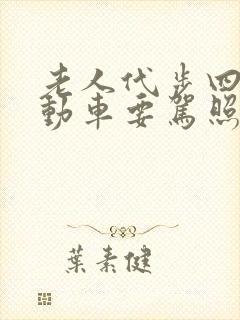 老人代步四
動車要駕照
葉素健